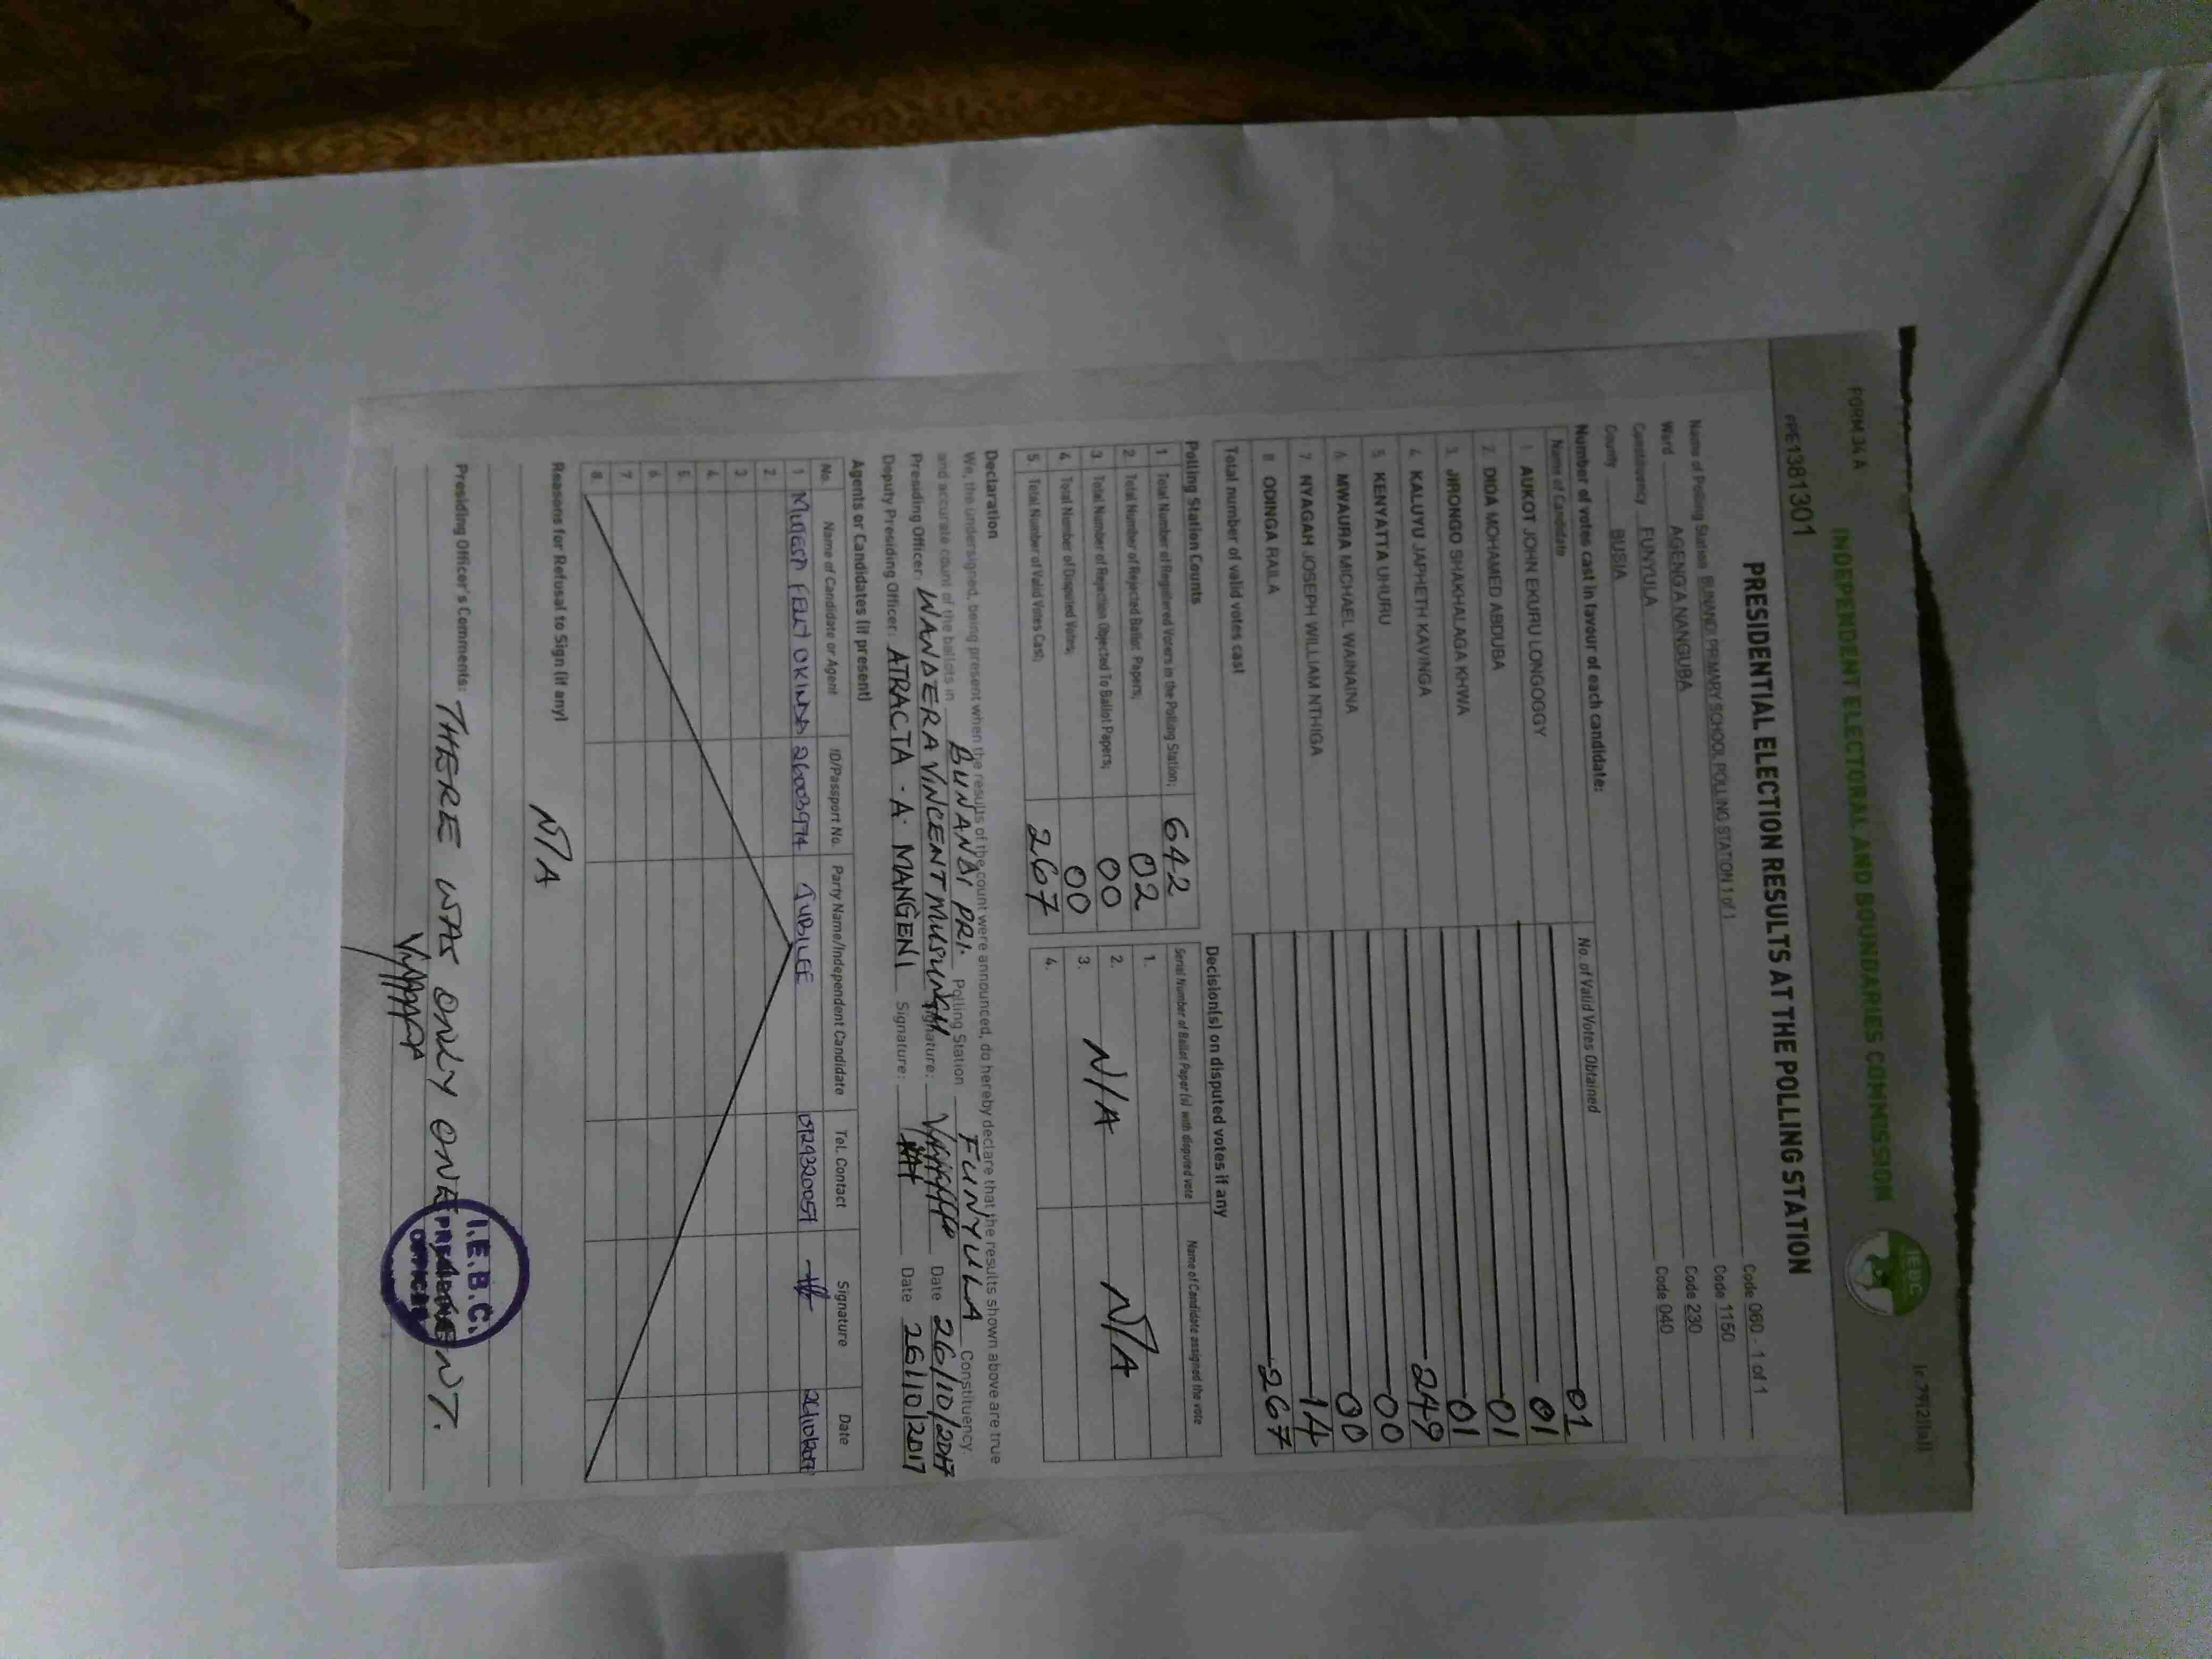 FORM 34 A
INDEPENDENT ELECTORAL AND BOUNDARIES COMMISSION
IEBC
FPE1381301
PRESIDENTIAL ELECTION RESULTS AT THE POLLING STATION
Name of Polling Station BUNANDI PRIMARY SCHOOL POLLING STATION 1 of 1 Code 060 - 1 of 1
Ward AGENG'A NANGUBA Code 1150
Constituency FUNYULA Code 230
County BUSIA Code 040
Number of votes cast in favour of each candidate:
Name of Candidate No. of Valid Votes Obtained
1 AUKOT JOHN EKURU LONGOGGY 01
2. DIDA MOHAMED ABDUBA 01
3. JIRONGO SHAKHALAGA KHWA 01
4. KALUYU JAPHETH KAVINGA 01
5. KENYATTA UHURU 249
6 MWAURA MICHAEL WAINAINA 00
7 NYAGAH JOSEPH WILLIAM NTHIGA 00
8 ODINGA RAILA 14
Total number of valid votes cast 267
Polling Station Counts
1 Total Number of Registered Voters in the Polling Station; 642
2. Total Number of Rejected Ballot Papers; 02
3 Total Number of Rejection Objected To Ballot Papers; 00
4 Total Number of Disputed Votes; 00
5. Total Number of Valid Votes Cast; 267
Decision(s) on disputed votes if any
Serial Number of Ballot Paper (s) with disputed vote Name of Candidate assigned the vote
1.
2.
3. N/A N/A
4.
Declaration
We, the undersigned, being present when the results of the count were announced, do hereby declare that the results shown above are true
and accurate count of the ballots in BUNANDI PRI. Polling Station FUNYULA Constituency.
Presiding Officer: WANDERA VINCENT MUSUNGU Signature: Date 26/10/2017
Deputy Presiding Officer: ATRACTA - A. MANGENI Signature: Date 26/10/2017
Agents or Candidates (if present)
No. Name of Candidate or Agent ID/Passport No. Party Name/Independent Candidate Tel. Contact Signature Date
1 OKINDA 26003974 JUBILEE 26/10/2017
2.
3
4.
5.
6
7.
8.
Reasons for Refusal to Sign (if any)
N/A
Presiding Officer's Comments: THERE WAS ONLY ONE AGENT.
I.E.B.C.
PRESIDING
OFFICER